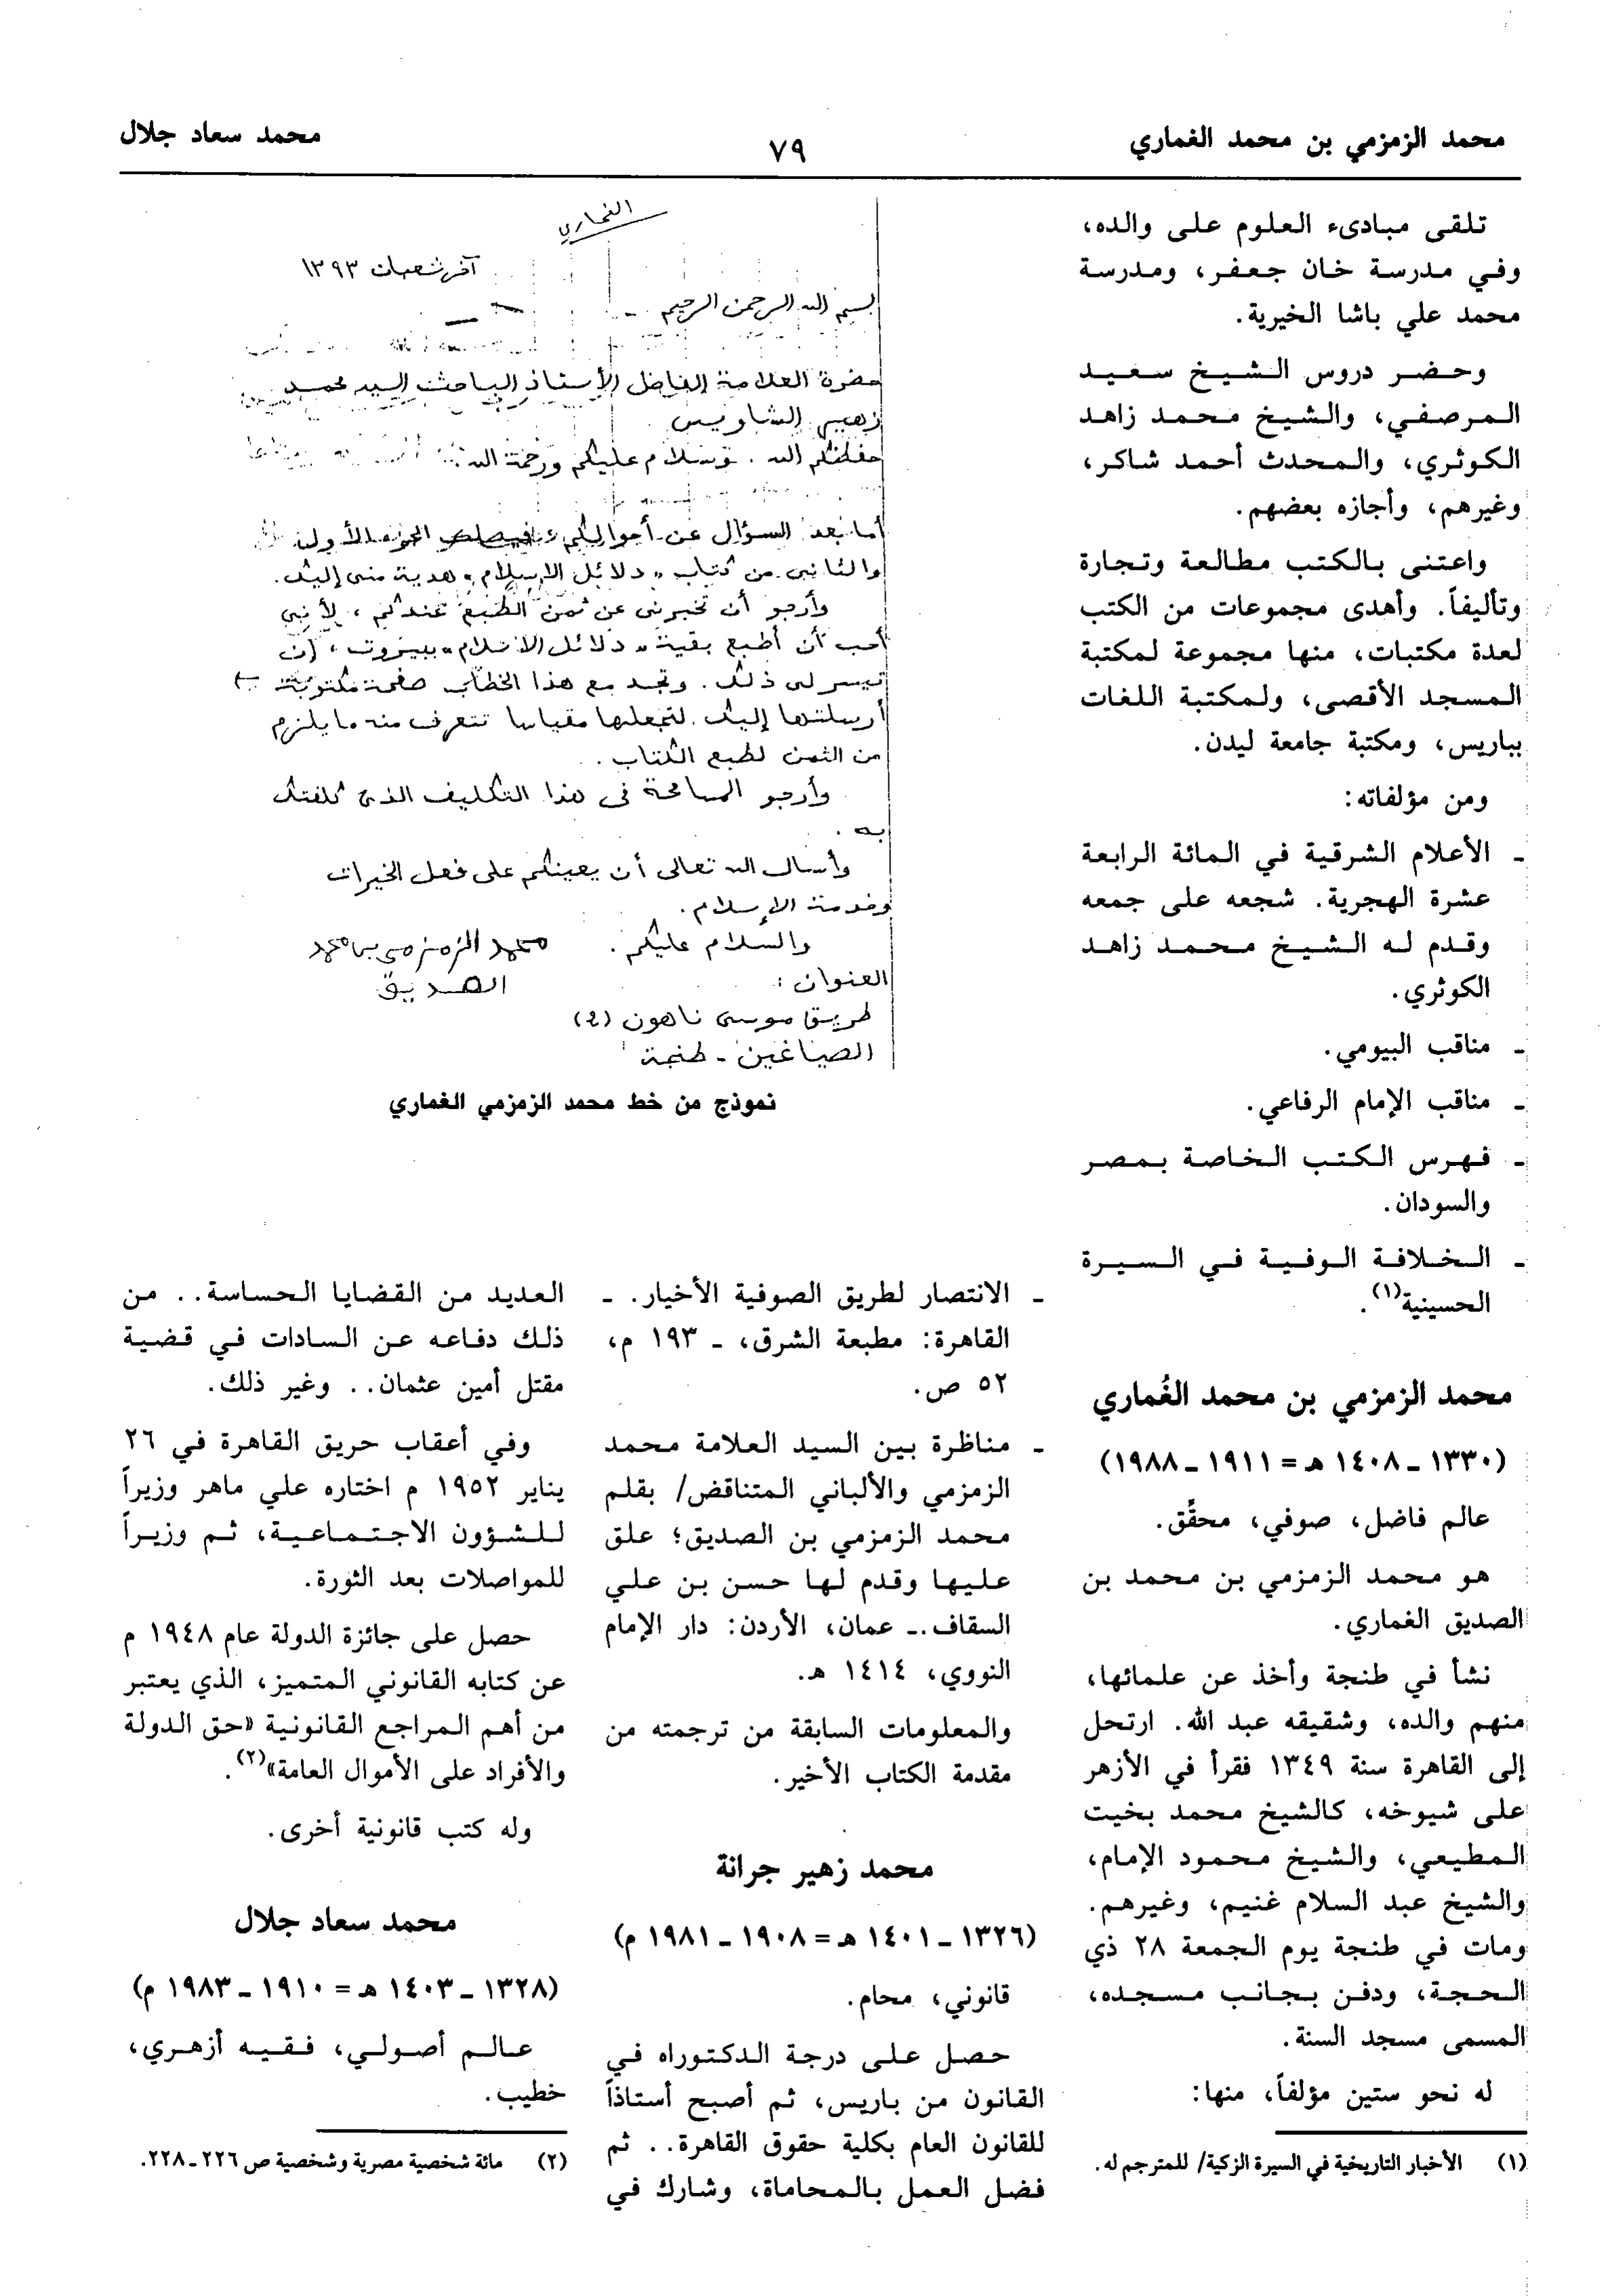 محمد الزمزمي بن محمد الغماري
٧٩
محمد سعاد جلال
تلقى مبادىء العلوم على والده،
وفي مدرسة خان جعفر، ومدرسة
محمد علي باشا الخيرية.
وحضر دروس الشيخ سعيد
المرصفي، والشيخ محمد زاهد
الكوثري، والمحدث أحمد شاكر،
وغيرهم، وأجازه بعضهم.
واعتنى بالكتب مطالعة وتجارة
وتأليفاً. وأهدى مجموعات من الكتب
لعدة مكتبات، منها مجموعة لمكتبة
المسجد الأقصى، ولمكتبة اللغات
بباريس، ومكتبة جامعة ليدن.
ومن مؤلفاته:
ـ الأعلام الشرقية في المائة الرابعة
عشرة الهجرية. شجعه على جمعه
وقدم له الشيخ محمد زاهد
الكوثري.
ـ مناقب البيومي.
ـ مناقب الإمام الرفاعي.
ـ فهرس الكتب الخاصة بمصر
والسودان.
ـ الخلافة الوفية في السيرة
الحسينية(١).
محمد الزمزمي بن محمد الغُماري
(١٣٣٠ ـ ١٤٠٨ هـ = ١٩١١ ـ ١٩٨٨)
عالم فاضل، صوفي، محقِّق.
هو محمد الزمزمي بن محمد بن
الصديق الغماري.
نشأ في طنجة وأخذ عن علمائها،
منهم والده، وشقيقه عبد الله. ارتحل
إلى القاهرة سنة ١٣٤٩ فقرأ في الأزهر
على شيوخه، كالشيخ محمد بخيت
المطيعي، والشيخ محمود الإمام،
والشيخ عبد السلام غنيم، وغيرهم.
ومات في طنجة يوم الجمعة ٢٨ ذي
الحجة، ودفن بجانب مسجده،
المسمى مسجد السنة.
له نحو ستين مؤلفاً، منها:
(١) الأخبار التاريخية في السيرة الزكية/ للمترجم له.
الغماري
آخر شعبان ١٣٩٣
بسم الله الرحمن الرحيم
حضرة العلامة الفاضل الأستاذ الباحث السيد محمد
زهير الشاويش
حفظكم الله. وسلام عليكم ورحمة الله
أما بعد السؤال عن أحوالكم، فيصلك الجزء الأول
والثاني من كتاب «دلائل الإسلام» هدية مني إليك.
وأرجو أن تخبرني عن ثمن الطبع عندكم، لأنني
أحب أن أطبع بقية «دلائل الإسلام» ببيروت، إن
تيسر لي ذلك. وتجد مع هذا الخطاب صفحة مكتوبة
أرسلتها إليك لتجعلها مقياسا تتعرف منه ما يلزم
من الثمن لطبع الكتاب.
وأرجو المسامحة في هذا التكليف الذي كلفتك
به.
وأسأل الله تعالى أن يعينكم على فعل الخيرات
وخدمة الإسلام.
والسلام عليكم. محمد الزمزمي بن محمد
الصديق
العنوان:
طريق موسى ناهون (٤)
الصياغين ـ طنجة
نموذج من خط محمد الزمزمي الغماري
ـ الانتصار لطريق الصوفية الأخيار. ـ
القاهرة: مطبعة الشرق، ـ ١٩٣ م،
٥٢ ص.
ـ مناظرة بين السيد العلامة محمد
الزمزمي والألباني المتناقض/ بقلم
محمد الزمزمي بن الصديق؛ علق
عليها وقدم لها حسن بن علي
السقاف.ـ عمان، الأردن: دار الإمام
النووي، ١٤١٤ هـ.
والمعلومات السابقة من ترجمته من
مقدمة الكتاب الأخير.
محمد زهير جرانة
(١٣٢٦ ـ ١٤٠١ هـ = ١٩٠٨ ـ ١٩٨١ م)
قانوني، محام.
حصل على درجة الدكتوراه في
القانون من باريس، ثم أصبح أستاذاً
للقانون العام بكلية حقوق القاهرة.. ثم
فضل العمل بالمحاماة، وشارك في
العديد من القضايا الحساسة.. من
ذلك دفاعه عن السادات في قضية
مقتل أمين عثمان.. وغير ذلك.
وفي أعقاب حريق القاهرة في ٢٦
يناير ١٩٥٢ م اختاره علي ماهر وزيراً
للشؤون الاجتماعية، ثم وزيراً
للمواصلات بعد الثورة.
حصل على جائزة الدولة عام ١٩٤٨ م
عن كتابه القانوني المتميز، الذي يعتبر
من أهم المراجع القانونية «حق الدولة
والأفراد على الأموال العامة»(٢).
وله كتب قانونية أخرى.
محمد سعاد جلال
(١٣٢٨ ـ ١٤٠٣ هـ = ١٩١٠ ـ ١٩٨٣ م)
عالم أصولي، فقيه أزهري،
خطيب.
(٢) مائة شخصية مصرية وشخصية ص ٢٢٦ ـ ٢٢٨.